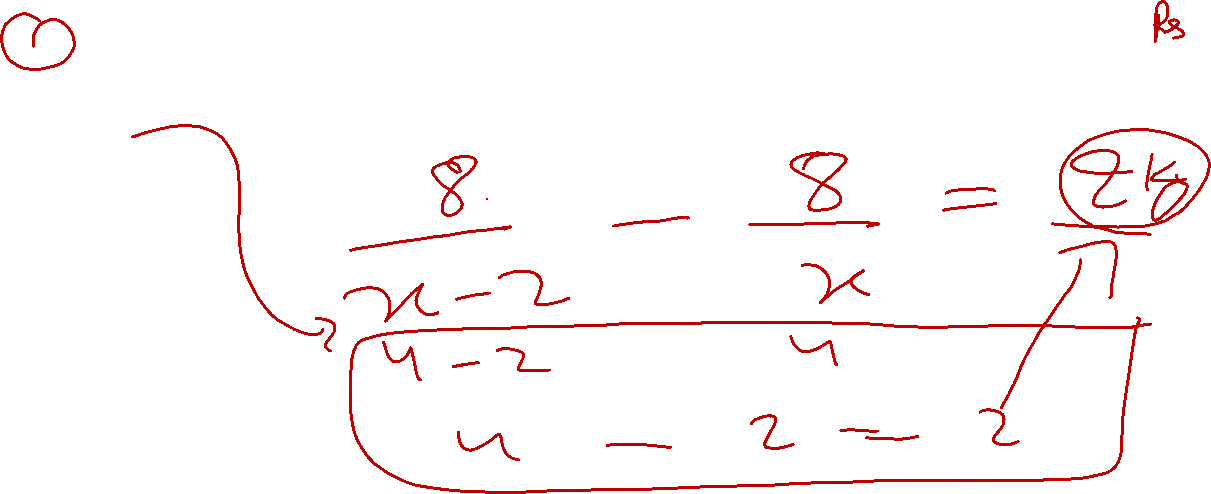 Rs
8/(x-2) - 8/x = 2kg
4-2 4
4 - 2 = 2